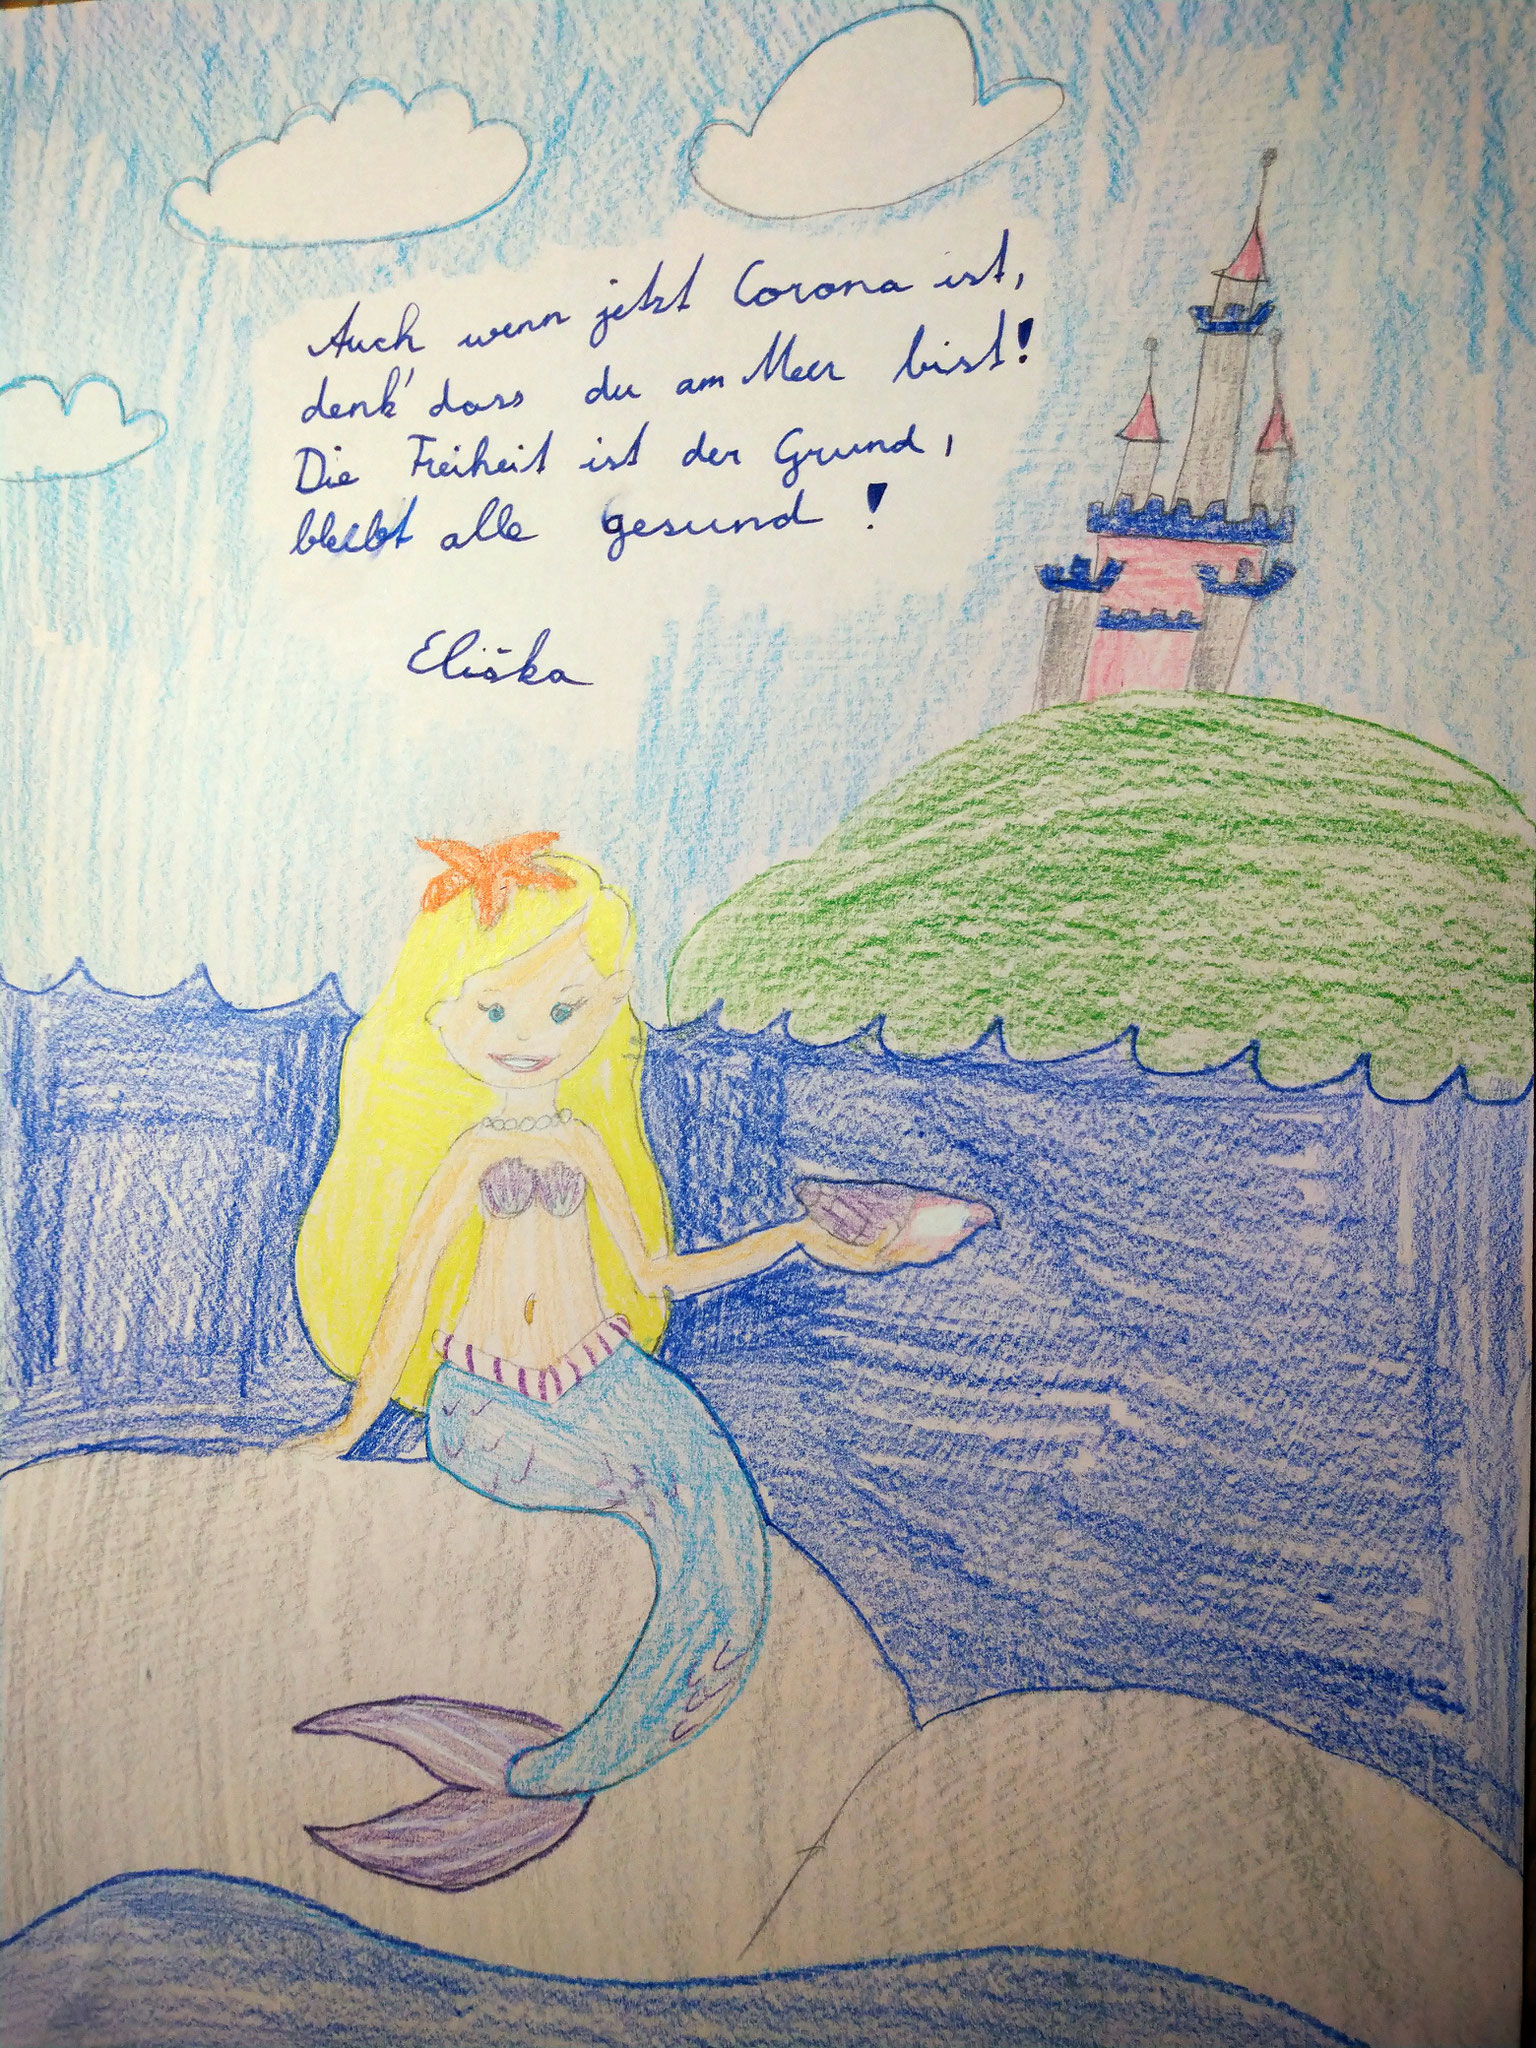 Auch wenn jetzt Corona ist,
denk' dass du am Meer bist!
Die Freiheit ist der Grund,
bleibt alle gesund!
Eliška